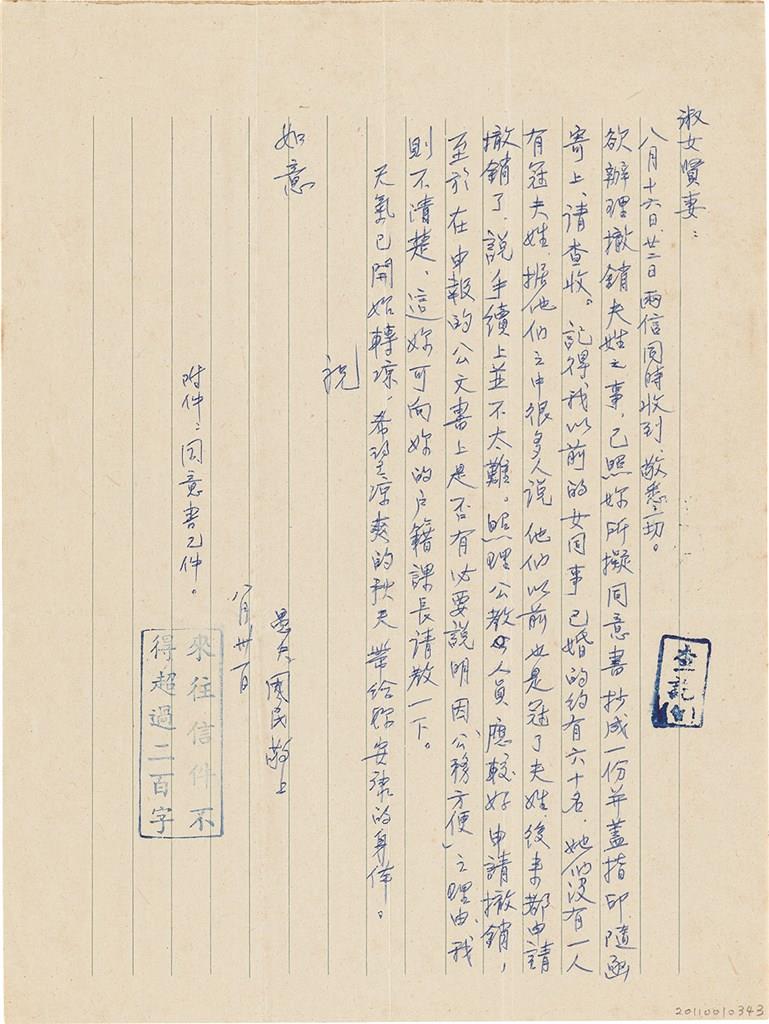 淑女賢妻：
八月十六日、廿二日兩信同時收到、敬悉一切。
欲辦理撤銷夫姓之事，已照妳所擬同意書抄成一份并蓋指印隨函
寄上、請查收。記得我以前的女同事已婚的約有六十名，她们沒有一人
有冠夫姓，據他们之中很多人說他们以前也是冠了夫姓，後來都申請
撤銷了，說手續上並不太難。照理公教人員應較好申請撤銷，
至於在申報的公文書上是否有必要說明因「公務方便」之理由，我
則不清楚、這妳可向妳的户籍課長請教一下。
天氣已開始轉凉，希望凉爽的秋天帶給妳安祥的身体。
祝
如意
愚夫 國民敬上
八月卅一日
附件：同意書乙件。
查訖
來往信件不
得超過二百字
20110010343